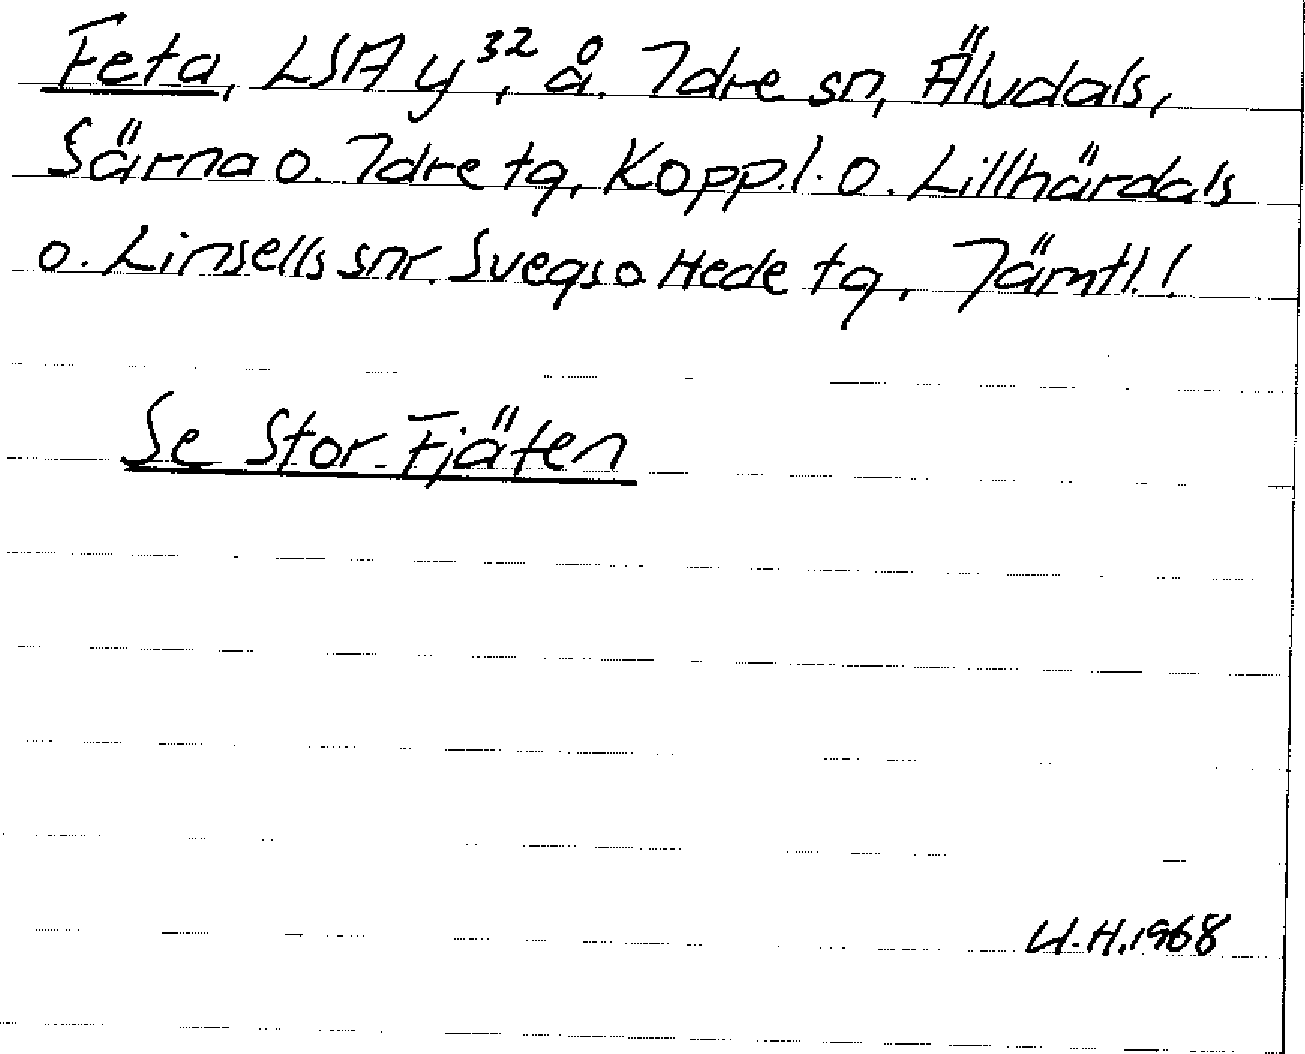 Feta, LSA y³², å. Idre sn, Älvdals,
Särna o. Idre tg, Kopp.l. o. Lillhärdals
o. Linsells snr. Svegs o Hede tg, Jämtl.!
Se Stor-Fjäten
U.H.1968